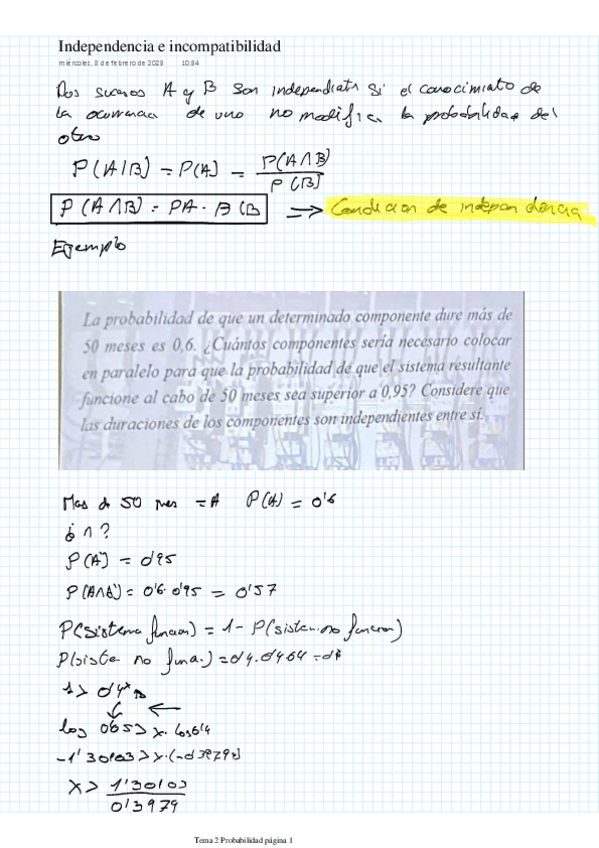 Independencia e incompatibilidad
miércoles, 8 de febrero de 2023 10:34
Dos sucesos A y B son independietn si el conocimiato de
la ocurrencia de uno no modifica la probabilidad del
otro
P(A/B) = P(A) = P(A∩B) / P(B)
P(A∩B) = PA · B(B ⇒ Condición de independencia
Ejemplo
La probabilidad de que un determinado componente dure más de
50 meses es 0,6. ¿Cuántos componentes sería necesario colocar
en paralelo para que la probabilidad de que el sistema resultante
funcione al cabo de 50 meses sea superior a 0,95? Considere que
las duraciones de los componentes son independientes entre sí.
Mas de 50 mes = A P(A) = 0'6
¿n?
P(A) = 0'95
P(A∩A) = 0'6·0'95 = 0'57
P(sistema funcion) = 1 - P(sistem no funcion)
P(siste no funa.) =
log 0'05 > x·
-1'30103 > x·(-0'3979
x > 1'30103 / 0'3979
Tema 2 Probabilidad página 1